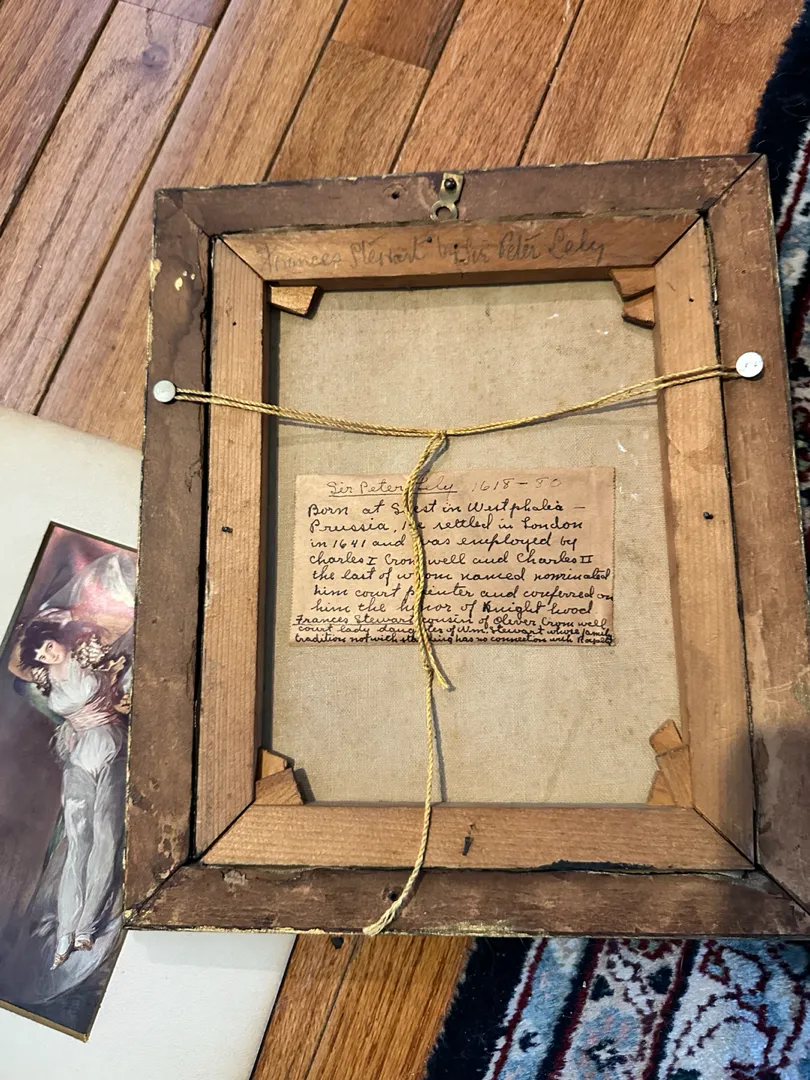 Frances Stewart by Sir Peter Lely
Sir Peter Lely 1618-80
Born at Soest in Westphalia -
Prussia, he settled in London
in 1641 and was employed by
Charles I Cromwell and Charles II
the last of whom named nominated
him court painter and conferred on
him the honor of Knight hood
Frances Stewart cousin of Olever Cromwell
court lady daughter of Wm. Stewart whose family
tradition not with standing has no connection with